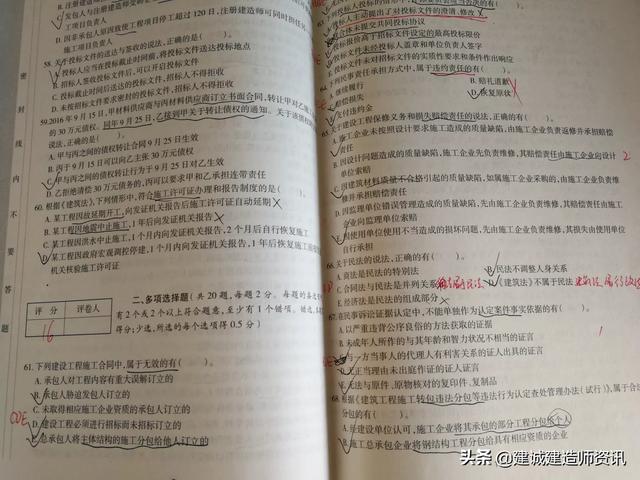 C. 发包人与注册建造师受聘
工项目负责人
D. 因非承包人原因致使工程项目停工超过 120 日，注册建造师可同时担任
施工项目负责人
58. 关于投标文件的送达与签收的说法，正确的是(　　)。
A. 投标人应当在投标截止时间前，将投标文件送达投标地点
B. 招标人签收投标文件后，可以开启投标文件
C. 投标截止时间后送达的投标文件，招标人不得拒收
D. 未按招标文件要求密封的投标文件，招标人不得拒收
59.2016 年 9 月 15 日，甲材料供应商与丙材料供应商订立书面合同，转让甲对乙
的 30 万元债权。同年 9 月 25 日，乙接到甲关于转让债权的通知。关于该债权
说法，正确的是(　　)。
A. 甲与丙之间的债权转让合同 9 月 25 日生效
B. 丙于 9 月 15 日可以向乙主张 30 万元债权
C. 甲与丙之间的债权转让行为于 9 月 25 日对乙生效
D. 乙拒绝清偿 30 万元债务的，丙可以要求甲和乙承担连带责任
60. 根据《建筑法》，下列情形中，符合施工许可证办理和报告制度的是(　　)。
A. 某工程因故延期开工，向发证机关报告后施工许可证自动延期
B. 某工程因地震中止施工，1 年后向发证机关报告
C. 某工程因洪水中止施工，1 个月内向发证机关报告，2 个月后自行恢复施工
D. 某工程因政府宏观调控停建，1 个月内向发证机关报告，1 年后恢复施工
机关核验施工许可证
密 封 线 内 不 要 答 题
评 分 评卷人
16
二、多项选择题(共 20 题，每题 2 分。每题的备选
有 2 个或 2 个以上符合题意，至少有 1 个错项。错选，
得分；少选，所选的每个选项得 0.5 分)
61. 下列建设工程施工合同中，属于无效的有(　　)。
A. 承包人对工程内容有重大误解订立的
B. 承包人胁迫发包人订立的
C. 未取得相应施工企业资质的承包人订立的
D. 建设工程必须进行招标而未招标订立的
E. 总承包人将主体结构的施工分包给他人订立的
CDE
A. 投标人主动提出了对投标文件的澄清、修改
B. 联合体未提交共同投标协议
投标报价高于招标文件设定的最高投标限价
投标文件未经投标人盖章和单位负责人签字
E. 投标文件未对招标文件的实质性要求和条件作出响应
64. 下列民事责任承担方式中，属于违约责任的有(　　)。
A. 继续履行
B. 赔礼道歉
赔偿损失
D. 恢复原状
E. 支付违约金
65. 关于建设工程保修义务和损失赔偿责任的说法，正确的有(　　)。
A. 施工企业未按照设计要求施工造成的质量缺陷，由施工企业负责返修并承担赔偿
责任
B. 因设计问题造成的质量缺陷，施工企业先负责维修，其赔偿责任由施工企业向设计
单位索赔
C. 因建筑材料质量不合格引起的质量缺陷，如属施工企业采购的，由施工企业负责
维修并承担赔偿责任
D. 因监理单位错误管理造成的质量缺陷，先由施工企业负责维修，其赔偿责任由施工
企业向监理单位索赔
E. 因使用单位使用不当造成的损坏问题，先由施工企业负责维修，其损失由使用单位
自行承担
2
66. 关于民法的说法，正确的有(　　)。
A. 商法是民法的特别法
B. 民法不调整人身关系
C. 合同法与民法是并列关系
D. 《建筑法》不属于民法
E. 经济法是民法的组成部分
67. 在民事诉讼证据认定中，不能单独作为认定案件事实依据的有(　　)。
A. 以严重违背公序良俗的方法获取的证据
B. 未成年人所作的与其年龄和智力状况不相当的证言
与一方当事人的代理人有利害关系的证人出具的证言
D. 无正当理由未出庭作证的证人证言
E. 无法与原件、原物核对的复印件、复制品
1
68. 根据《建筑工程施工转包违法分包等违法行为认定查处管理办法(试行)》，属于合法
分包的有(　　)。
A. 经建设单位认可，施工企业将其承包的部分工程分包给个人
B. 施工总承包企业将钢结构工程分包给具有相应资质的企业
头条 @建诚建造师资讯